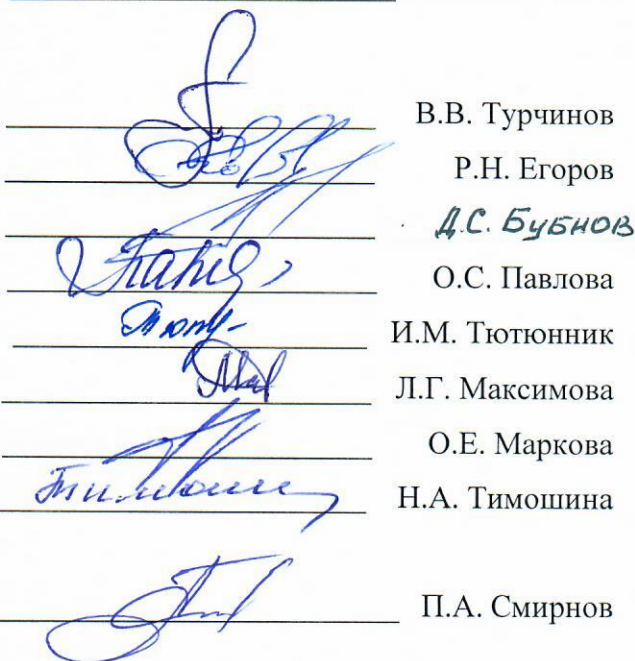 В.В. Турчинов
Р.Н. Егоров
Д.С. Бубнов
О.С. Павлова
И.М. Тютюнник
Л.Г. Максимова
О.Е. Маркова
Н.А. Тимошина
П.А. Смирнов